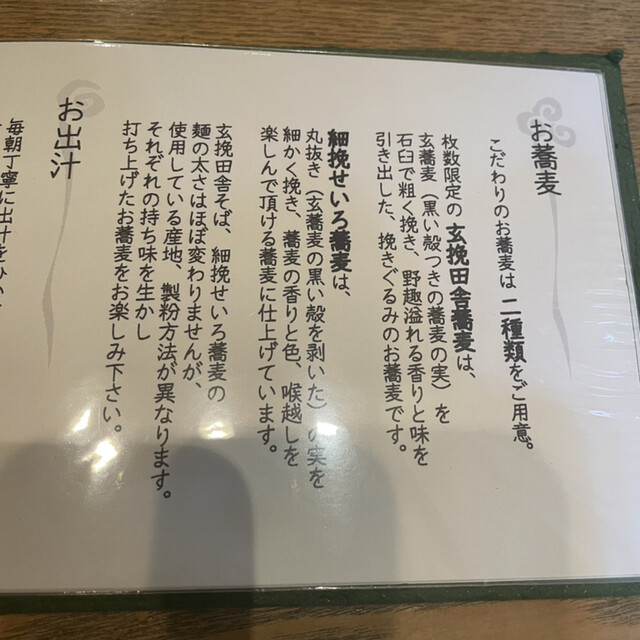 お蕎麦
こだわりのお蕎麦は 二種類をご用意。
枚数限定の 玄挽田舎蕎麦は、
玄蕎麦（黒い殻つきの蕎麦の実）を
石臼で粗く挽き、野趣溢れる香りと味を
引き出した、挽きぐるみのお蕎麦です。
細挽せいろ蕎麦は、
丸抜き（玄蕎麦の黒い殻を剥いた）の実を
細かく挽き、蕎麦の香りと色、喉越しを
楽しんで頂ける蕎麦に仕上げています。
玄挽田舎そば、細挽せいろ蕎麦の
麺の太さはほぼ変わりませんが、
使用している産地、製粉方法が異なります。
それぞれの持ち味を生かし
打ち上げたお蕎麦をお楽しみ下さい。
お出汁
毎朝丁寧に出汁をひい